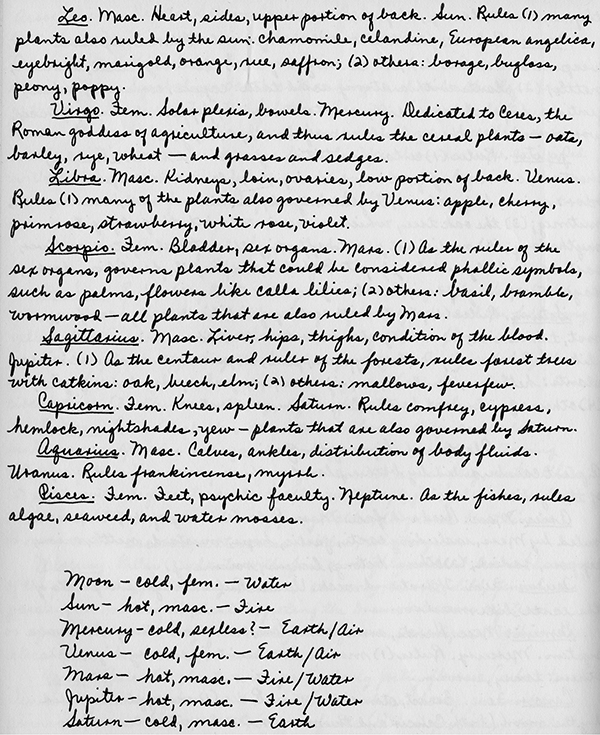 Leo. Masc. Heart, sides, upper portion of back. Sun. Rules (1) many
plants also ruled by the sun: chamomile, celandine, European angelica,
eyebright, marigold, orange, rue, saffron; (2) others: borage, bugloss,
peony, poppy.
Virgo. Fem. Solar plexis, bowels. Mercury. Dedicated to Ceres, the
Roman goddess of agriculture, and thus rules the cereal plants — oats,
barley, rye, wheat — and grasses and sedges.
Libra. Masc. Kidneys, loin, ovaries, low portion of back. Venus.
Rules (1) many of the plants also governed by Venus: apple, cherry,
primrose, strawberry, white rose, violet.
Scorpio. Fem. Bladder, sex organs. Mars. (1) As the ruler of the
sex organs, governs plants that could be considered phallic symbols,
such as palms, flowers like calla lilies; (2) others: basil, bramble,
wormwood — all plants that are also ruled by Mars.
Sagittarius. Masc. Liver, hips, thighs, condition of the blood.
Jupiter. (1) As the centaur and ruler of the forests, rules forest trees
with catkins: oak, beech, elm; (2) others: mallows, feverfew.
Capricorn. Fem. Knees, spleen. Saturn. Rules comfrey, cypress,
hemlock, nightshades, yew — plants that are also governed by Saturn.
Aquarius. Masc. Calves, ankles, distribution of body fluids.
Uranus. Rules frankincense, myrrh.
Pisces. Fem. Feet, psychic faculty. Neptune. As the fishes, rules
algae, seaweed, and water mosses.
Moon — cold, fem. — Water
Sun — hot, masc. — Fire
Mercury — cold, sexless? — Earth/Air
Venus — cold, fem. — Earth/Air
Mars — hot, masc. — Fire/Water
Jupiter — hot, masc. — Fire/Water
Saturn — cold, masc. — Earth